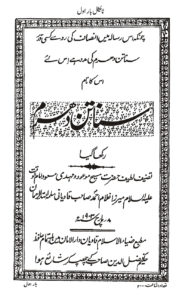 ٹائیٹل بار اول
چونکہ اس رسالہ میں انصاف کی رو سے کسی قدر
سناتن دھرم کی مدد ہے اس لئے
اس کا نام
سناتن دھرم
رکھا گیا
تصنیف لطیف حضرت مسیح موعود و مہدی مسعود
علیہ السلام میرزا غلام احمد صاحب قادیانی سلمہ الرحمان
۸ مارچ ۱۹۰۳ء
مطبع ضیاء الاسلام قادیان دارالامان میں باہتمام
حکیم فضل الدین صاحب کے چھپ کر شائع ہوا
بار اول